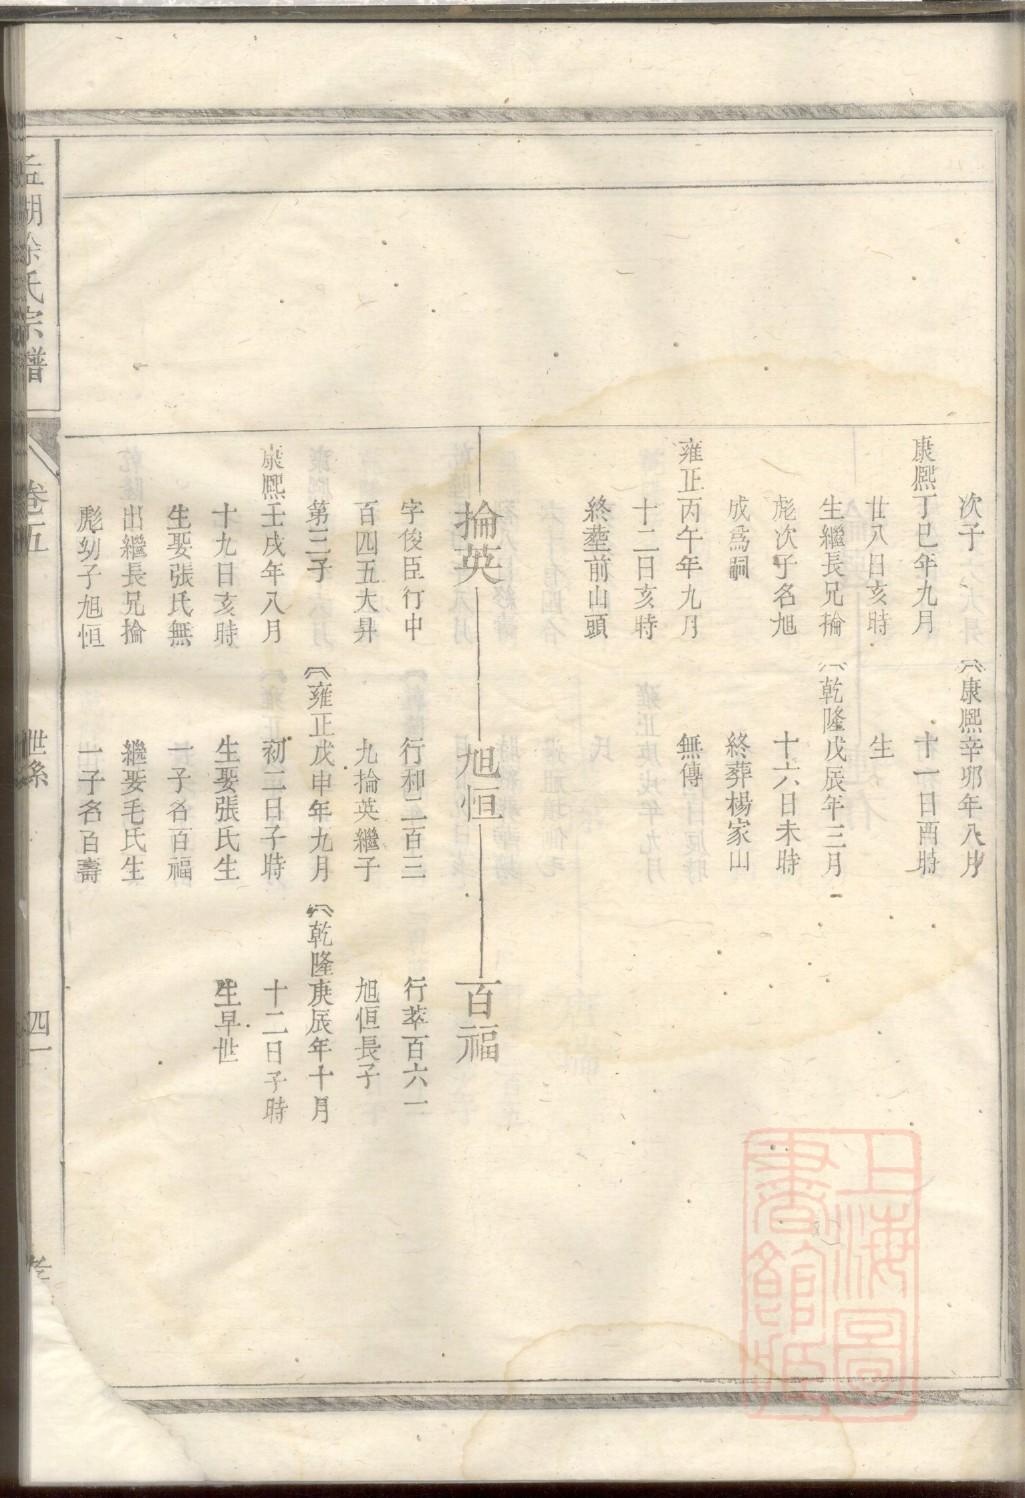 次子
康熙丁巳年九月
廿八日亥時
生繼長兄掄
彪次子名旭
成爲嗣
雍正丙午年九月
十二日亥時
終塟前山頭
掄英
字俊臣行中
百四五大昇
第三子
康熙壬戌年八月
十九日亥時
生娶張氏無
出繼長兄掄
彪幼子旭恒
康熙辛卯年八月
十一日酉時
生
乾隆戊辰年三月
十六日未時
終葬楊家山
無傳
旭恒
行和二百三
九掄英繼子
雍正戊申年九月
初二日子時
生娶張氏生
一子名百福
繼娶毛氏生
一子名百壽
百福
行萃百六一
旭恒長子
乾隆庚辰年十月
十二日子時
生早世
湖徐氏宗譜
卷五
世系
四一
上海圖書館